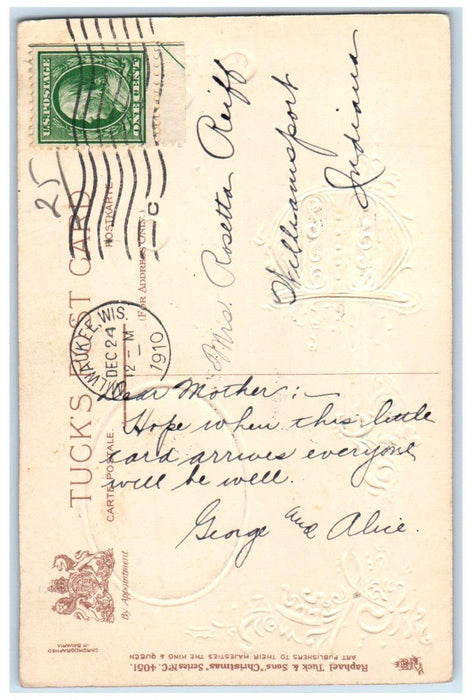 U.S. POSTAGE
ONE CENT
25
C
MILWAUKEE, WIS.
DEC 24
12 - M
1910
TUCK'S POST CARD
CARTE POSTALE
POSTKARTE
(FOR ADDRESS ONLY.)
Mrs. Rosetta Reiff
Williamsport
Indiana
Dear Mother:—
Hope when this little
card arrives everyone
will be well.
George and Alice.
By Appointment
CHROMOGRAPHED
IN BAVARIA
Raphael Tuck & Sons' "Christmas" Series No C. 4051.
ART PUBLISHERS TO THEIR MAJESTIES THE KING & QUEEN